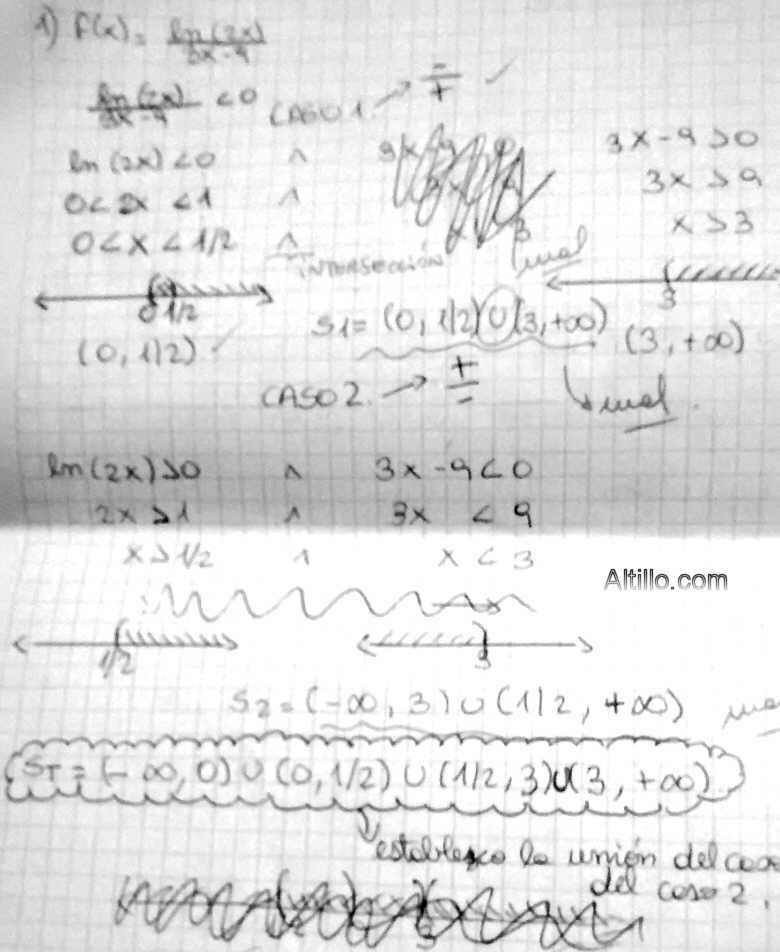 1) f(x) = ln(2x) / 3x-9
ln(2x) / 3x-9 < 0 CASO 1. → - / + ✓
ln(2x) < 0 ∧ 3x-9 > 0
0 < 2x < 1 ∧ 3x > 9
0 < x < 1/2 ∧ x > 3
INTERSECCIÓN mal
0 1/2 3
(0, 1/2) ✓ S1 = (0, 1/2) U (3, +∞) (3, +∞)
CASO 2. → + / - mal.
ln(2x) > 0 ∧ 3x-9 < 0
2x > 1 ∧ 3x < 9
x > 1/2 ∧ x < 3
Altillo.com
1/2 3
S2 = (-∞, 3) U (1/2, +∞)
ST = (-∞, 0) U (0, 1/2) U (1/2, 3) U (3, +∞)
establezco la unión del
del caso 2.